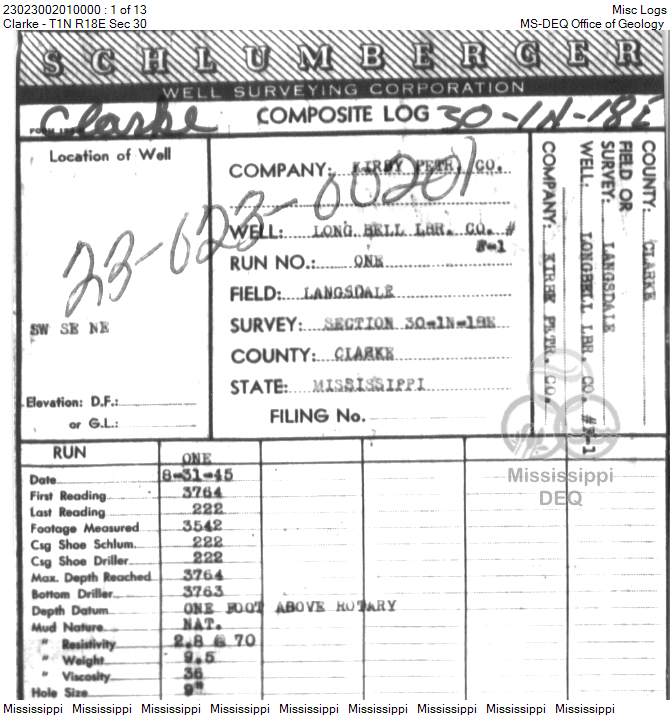 23023002010000 : 1 of 13 Misc Logs
Clarke - T1N R18E Sec 30 MS-DEQ Office of Geology
SCHLUMBERGER
WELL SURVEYING CORPORATION
Clarke COMPOSITE LOG 30-1N-18E
Location of Well
23-023-00201
SW SE NE
Elevation: D.F.:
or G.L.:
COMPANY: KIRBY PETR. CO.
WELL: LONG BELL LBR. CO. #
RUN NO.: ONE
FIELD: LANGSDALE
SURVEY: SECTION 30-1N-18E
COUNTY: CLARKE
STATE: MISSISSIPPI
FILING No.
COUNTY: CLARKE
FIELD OR
SURVEY: LANGSDALE
WELL: LONGBELL LBR. CO.
COMPANY: KIRBY PETR. CO.
Mississippi
DEQ
RUN ONE
Date 8-31-45
First Reading 3764
Last Reading 222
Footage Measured 3542
Csg Shoe Schlum. 222
Csg Shoe Driller 222
Max. Depth Reached 3764
Bottom Driller 3763
Depth Datum ONE FOOT ABOVE ROTARY
Mud Nature NAT.
" Resistivity 2.8 @ 70
" Weight 9.5
" Viscosity 36
Hole Size 9"
Mississippi Mississippi Mississippi Mississippi Mississippi Mississippi Mississippi Mississippi Mississippi